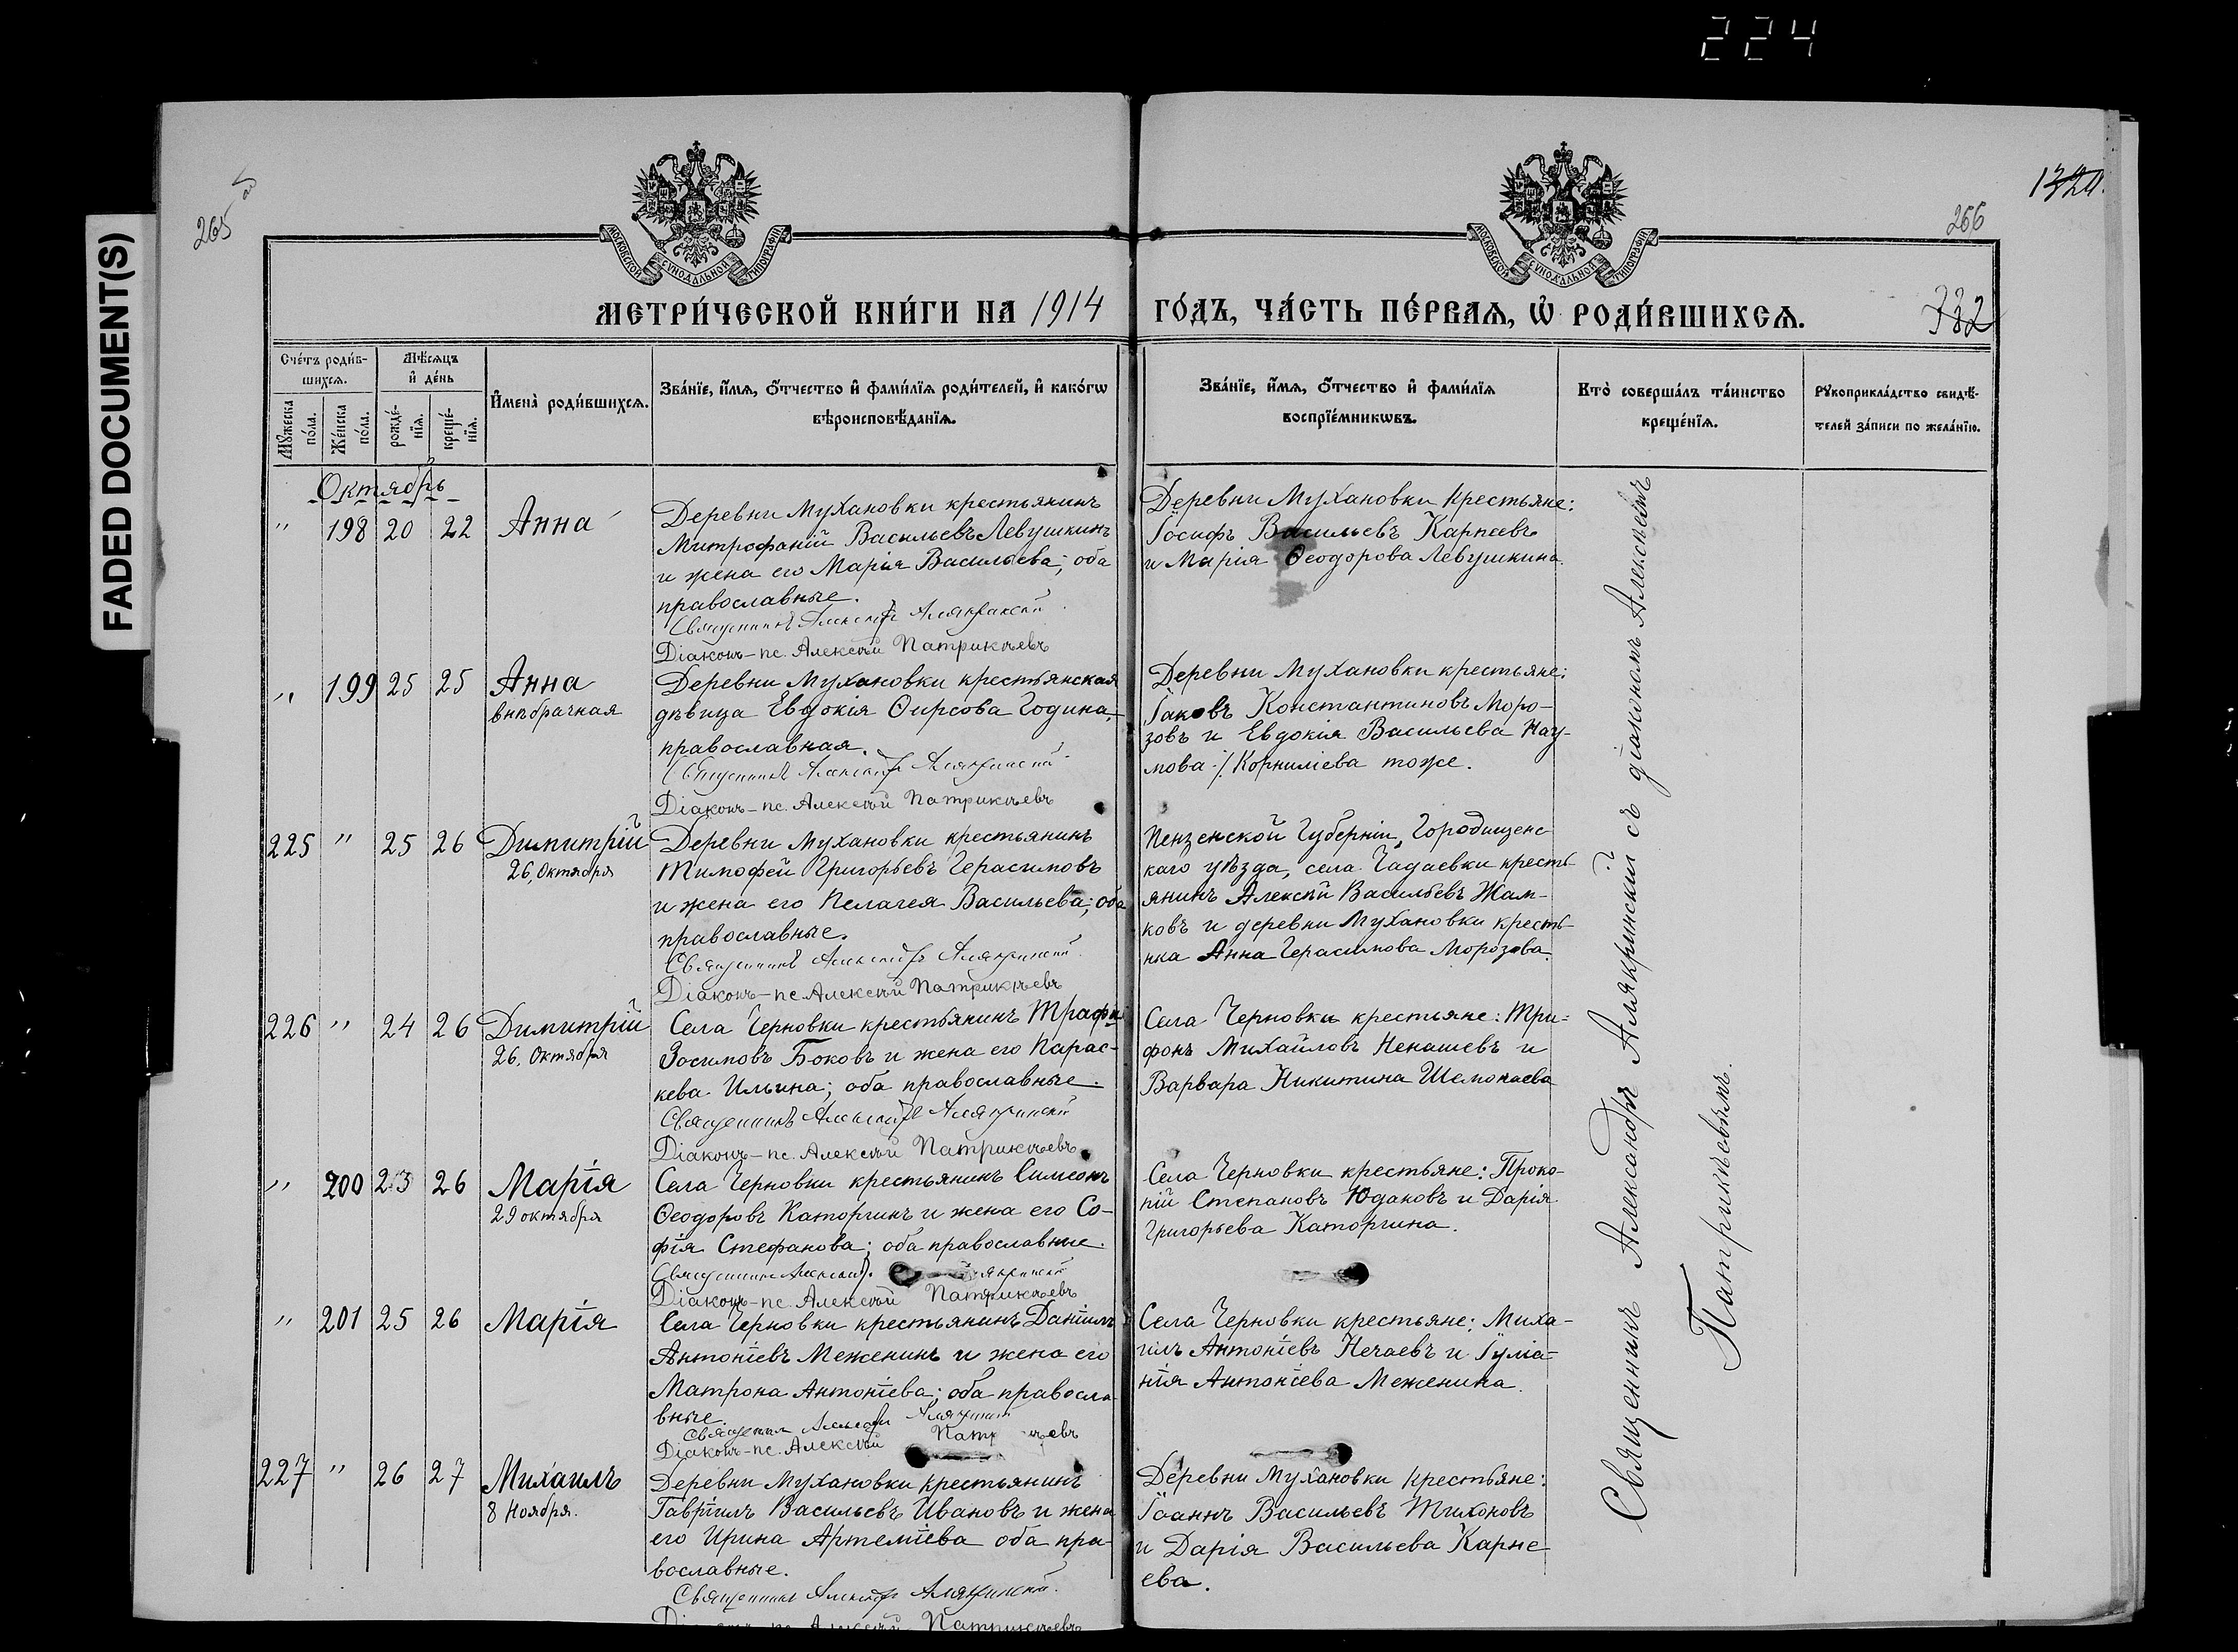 224
FADED DOCUMENT(S)
265 об
132
266
МОСКОВСКОЙ СѴНОДАЛЬНОЙ ТИПОГРАФІИ
МОСКОВСКОЙ СѴНОДАЛЬНОЙ ТИПОГРАФІИ
МЕТРИ́ЧЕСКОЙ КНИ́ГИ НА 1914 ГО́ДЪ, ЧА́СТЬ ПЕ́РВАѦ, Ѡ҆ РОДИ́ВШИХСѦ.
732
Сче́тъ роди́в-
шихсѧ.
Мꙋ́жеска
по́ла.
Же́нска
по́ла.
Мѣ́сѧцъ
и҆ де́нь
рожде́-
нїѧ.
креще́-
нїѧ.
И҆мена̀ роди́вшихсѧ.
Зва́нїе, и҆́мѧ, о҆́тчество и҆ фами́лїѧ роди́телей, и҆ како́гѡ
вѣроисповѣ́данїѧ.
Зва́нїе, и҆́мѧ, о҆́тчество и҆ фами́лїѧ
воспрїе́мникѡвъ.
Кто̀ соверша́лъ та́инство
креще́нїѧ.
Рꙋкоприкла́дство свидѣ́-
телей за́писи по жела́нїю.
Октябрь
" 198 20 22 Анна
Деревни Мухановки крестьянинъ
Митрофаній Васильевъ Левушкинъ
и жена его Марія Васильева; оба
православные.
Священникъ Александръ Алякринскій
Діаконъ-пс. Алексѣй Патрикѣевъ
Деревни Мухановки крестьяне:
Іосифъ Васильевъ Карпеевъ
и Марія Ѳеодорова Левушкина.
" 199 25 25 Анна
внѣбрачная
Деревни Мухановки крестьянская
дѣвица Евдокія Ѳирсова Година,
православная.
Священникъ Александръ Алякринскій
Діаконъ-пс. Алексѣй Патрикѣевъ
Деревни Мухановки крестьяне:
Іаковъ Константиновъ Моро-
зовъ и Евдокія Васильева Нау-
мова ·/. Корниліева тоже.
225 " 25 26 Димитрій
26, Октября
Деревни Мухановки крестьянинъ
Тимофей Григорьевъ Герасимовъ
и жена его Пелагея Васильева; оба
православные.
Священникъ Александръ Алякринскій
Діаконъ-пс Алексѣй Патрикѣевъ
Пензенской Губерніи, Городищенс-
каго уѣзда, села Чадаевки кресть-
янинъ Алексѣй Васильевъ Жам-
ковъ и деревни Мухановки кресть-
нка Анна Герасимова Морозова.
226 " 24 26 Димитрій
26, Октября
Села Черновки крестьянинъ Трафи
Зосимовъ Боковъ и жена его Парас-
кева Ильина; оба православные.
Священникъ Александръ Алякринскій
Діаконъ-пс. Алексѣй Патрикѣевъ
Села Черновки крестьяне: Три-
фонъ Михайловъ Ненашевъ и
Варвара Никитина Шемонаева
" 200 23 26 Марія
29 октября
Села Черновки крестьянинъ Симеонъ
Ѳеодоровъ Каторгинъ и жена его Со-
фія Стефанова; оба православные.
Священникъ
Діаконъ-пс. Алексѣй Патрикѣевъ
Села Черновки крестьяне: Проко-
пій Степановъ Юдаковъ и Дарія
Григорьева Каторгина.
" 201 25 26 Марія
Села Черновки крестьянинъ Даніилъ
Антоніевъ Меженинъ и жена его
Матрона Антоніева; оба правосла-
вные.
Священникъ Александръ
Діаконъ-пс. Алексѣй
Села Черновки крестьяне: Миха-
илъ Антоніевъ Нечаевъ и Іуліа-
нія Антоніева Меженина.
227 " 26 27 Михаилъ
8 Ноября.
Деревни Мухановки крестьянинъ
Гавріилъ Васильевъ Ивановъ и жена
его Ирина Артеміева оба пра-
вославные.
Священникъ Александръ Алякринскій.
Патрикѣевъ
Деревни Мухановки крестьяне:
Іоаннъ Васильевъ Тихоновъ
и Дарія Васильева Карпе
ева.
Священникъ Александръ Алякринскій съ діакономъ Алексѣемъ
Патрикѣевымъ.